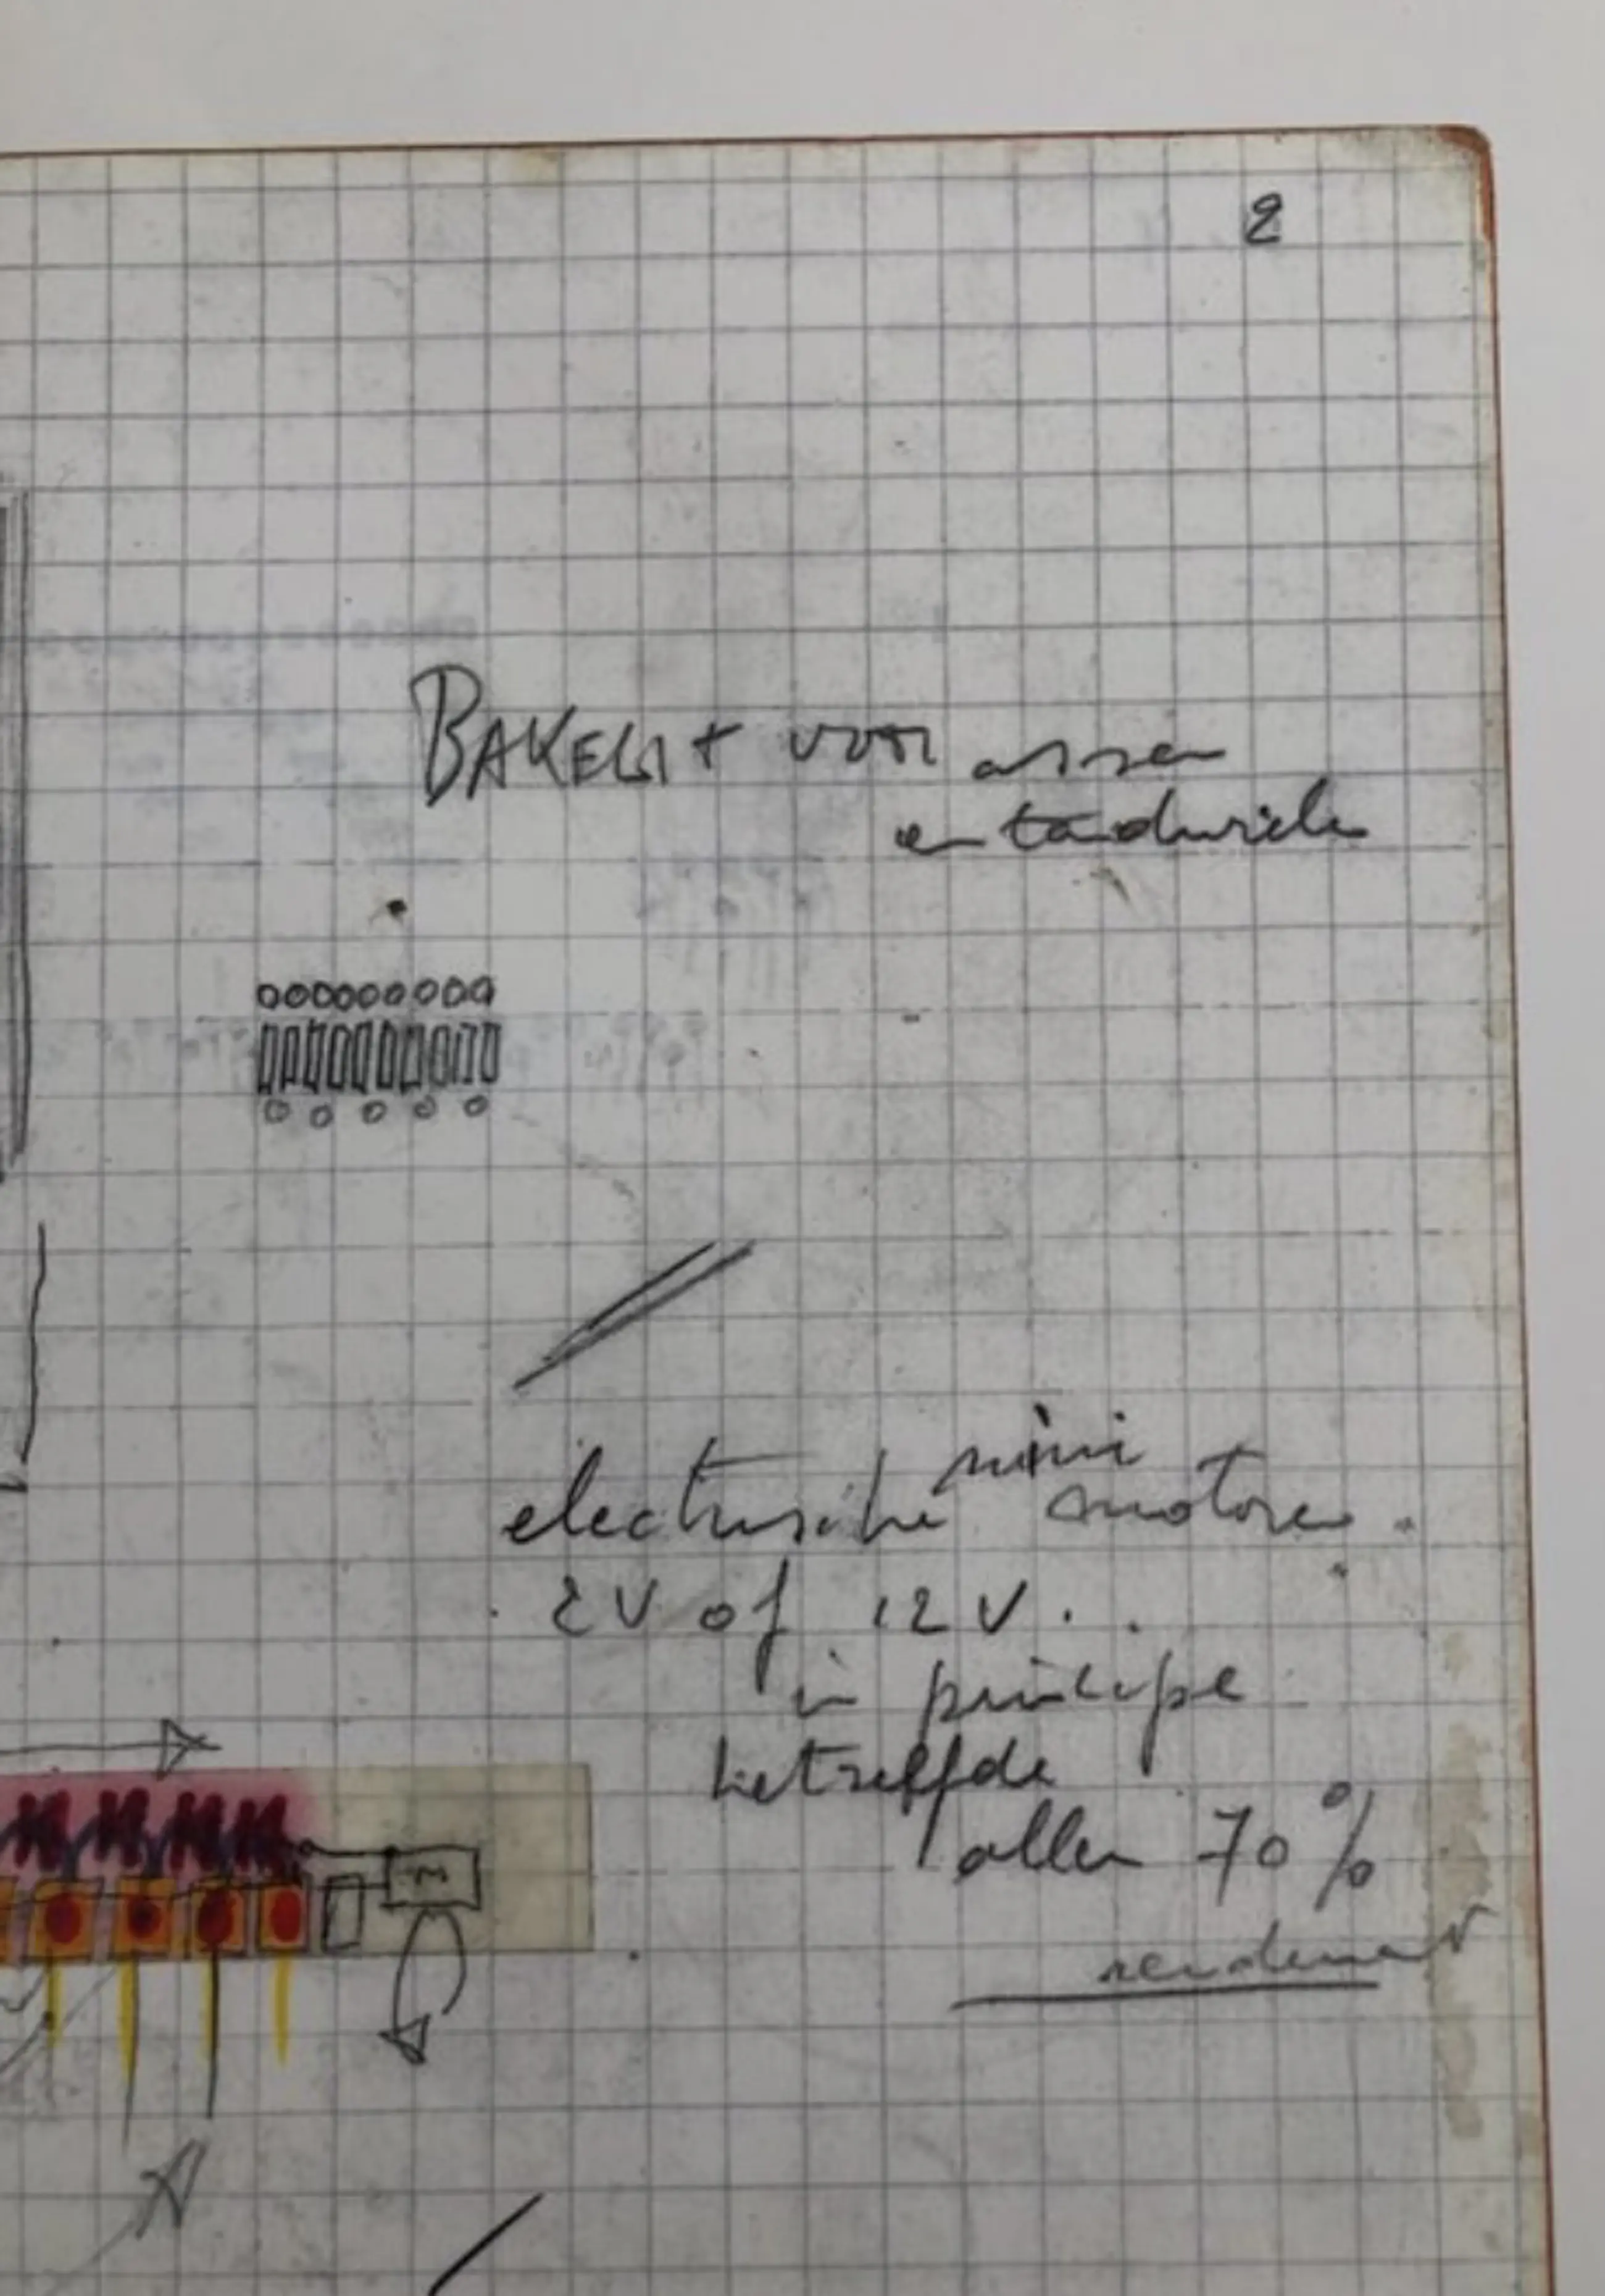 2
BAKELIT voor assen
en tandwielen
electrische mini motoren.
2V of 12V.
in principe
hetzelfde
allen 70%
rendement
M
A